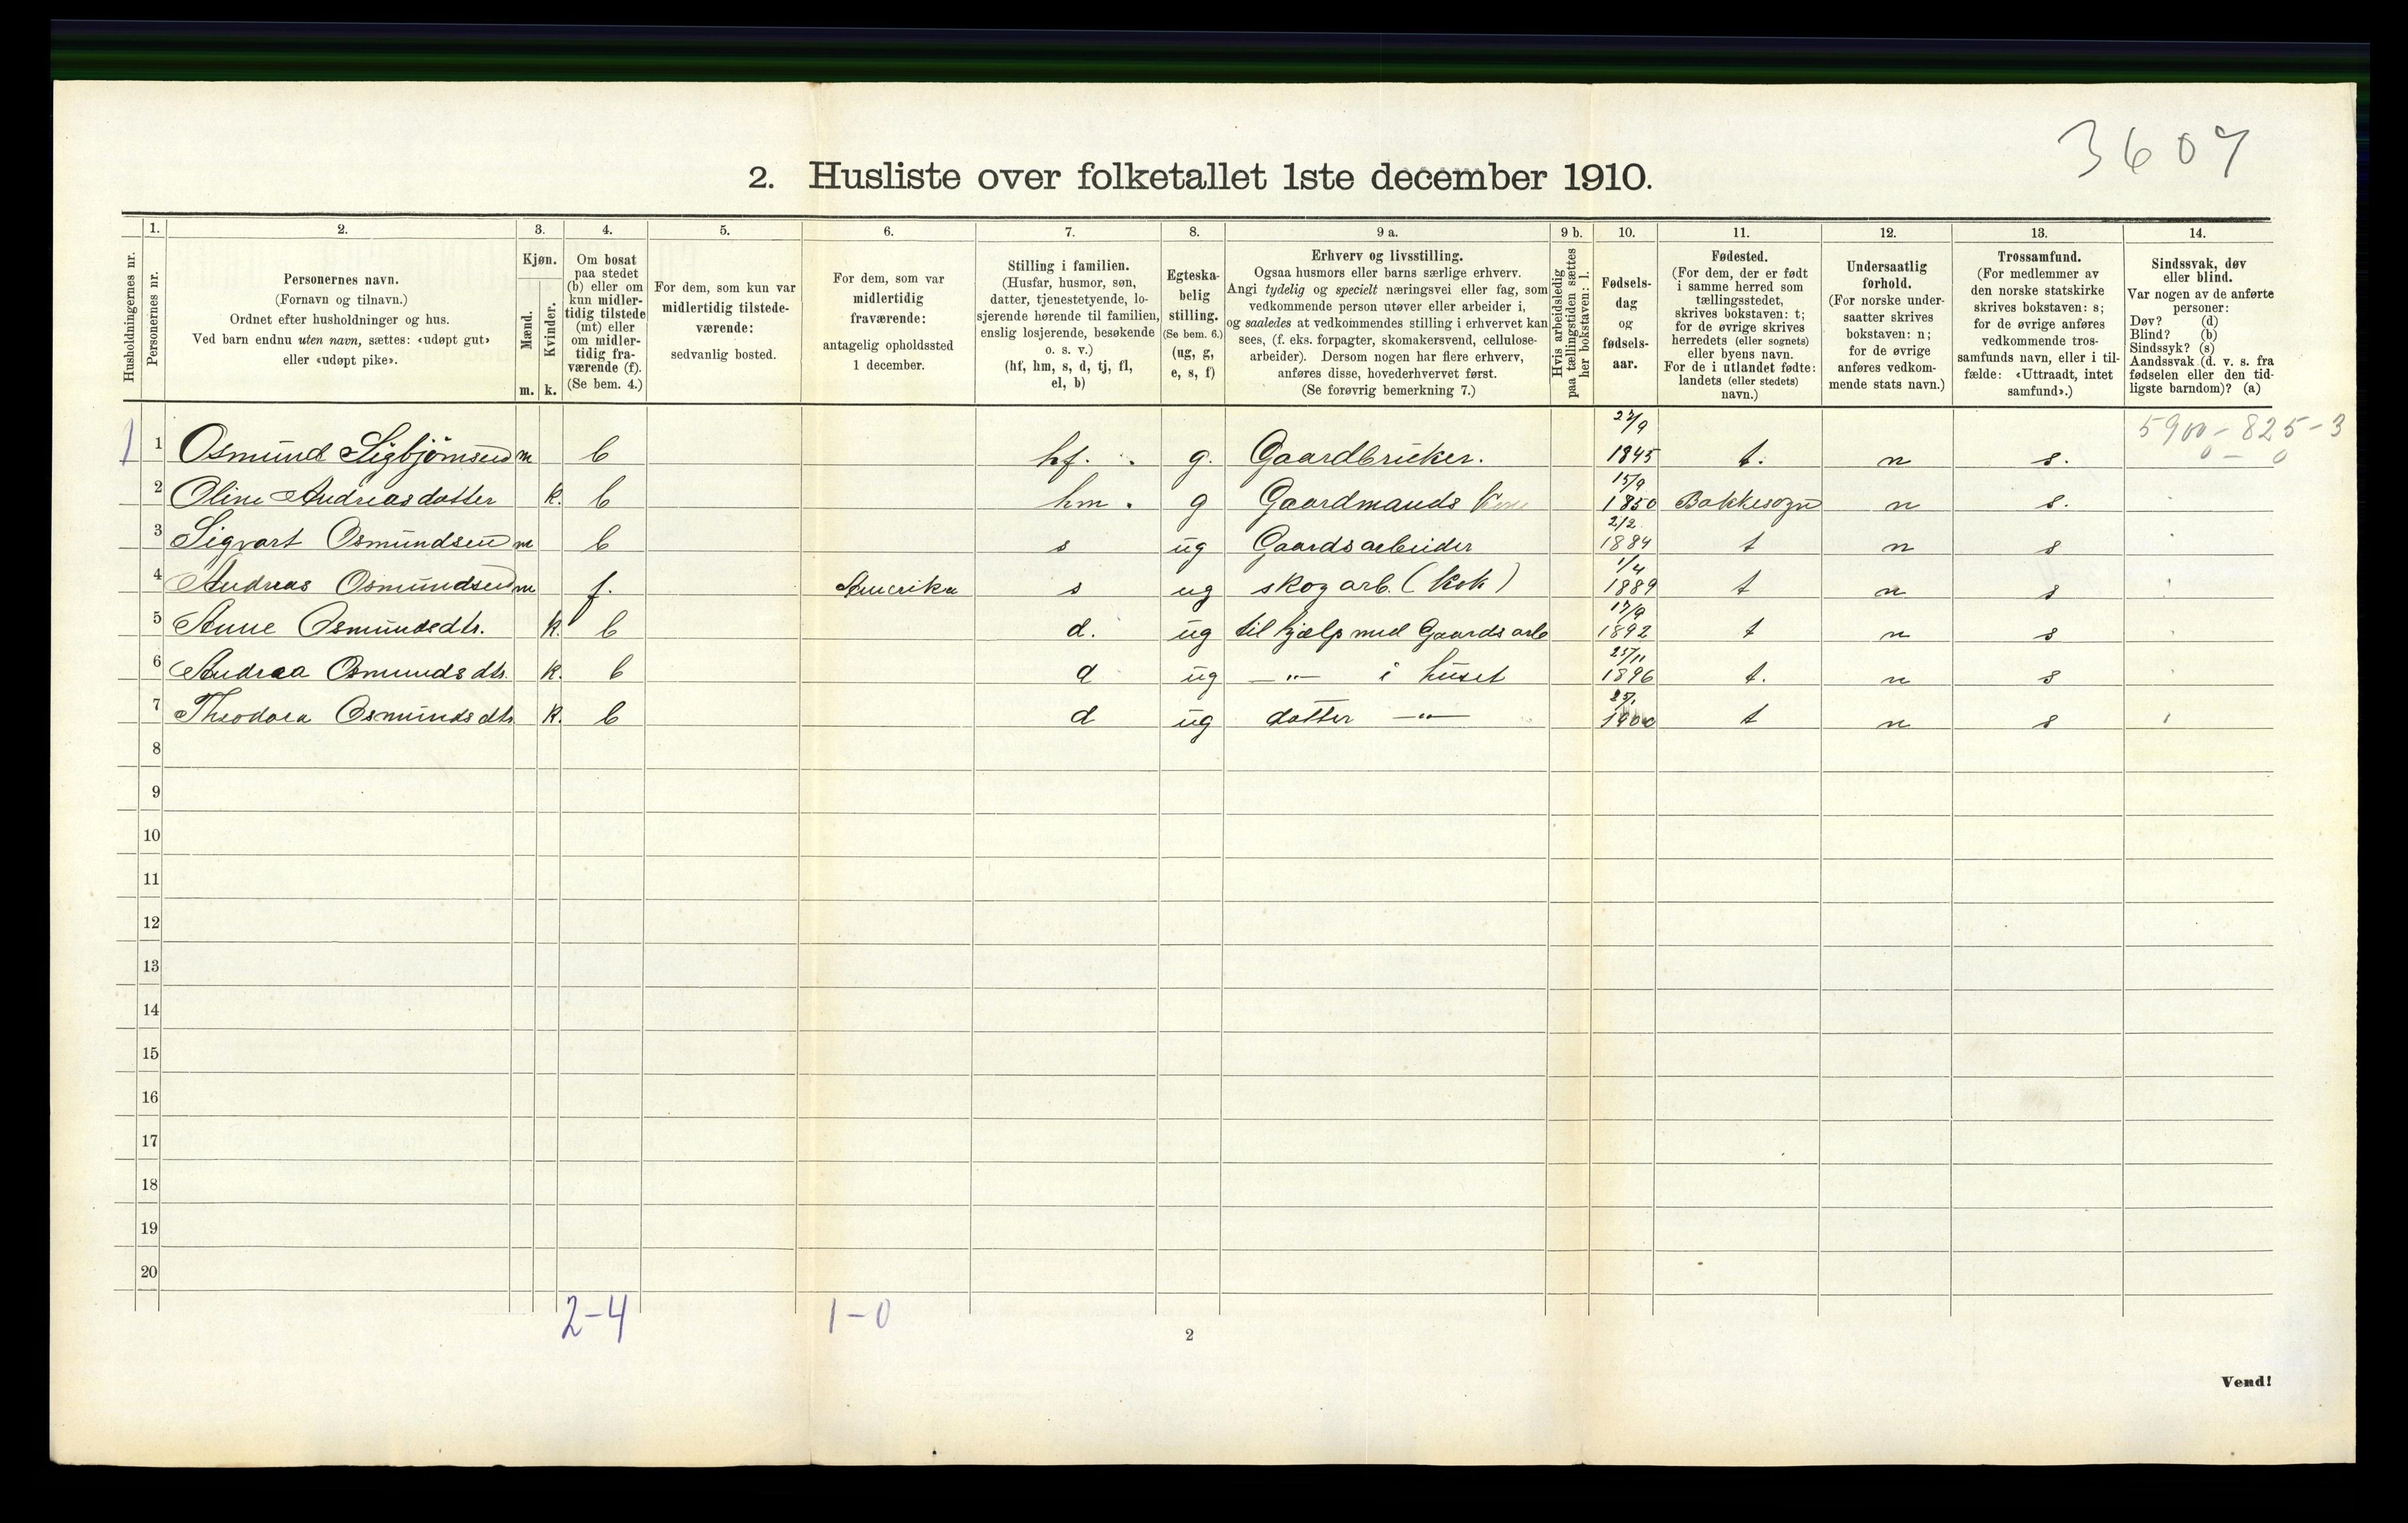 3607
2. Husliste over folketallet 1ste december 1910.
Husholdningernes nr.
1.
Personernes nr.
2.
Personernes navn.
(Fornavn og tilnavn.)
Ordnet efter husholdninger og hus.
Ved barn endnu uten navn, sættes: «udøpt gut»
eller «udøpt pike».
3.
Kjøn.
Mænd.
Kvinder.
m. k.
4.
Om bosat
paa stedet
(b) eller om
kun midler-
tidig tilstede
(mt) eller
om midler-
tidig fra-
værende (f).
(Se bem. 4.)
5.
For dem, som kun var
midlertidig tilstede-
værende:
sedvanlig bosted.
6.
For dem, som var
midlertidig
fraværende:
antagelig opholdssted
1 december.
7.
Stilling i familien.
(Husfar, husmor, søn,
datter, tjenestetyende, lo-
sjerende hørende til familien,
enslig losjerende, besøkende
o. s. v.)
(hf, hm, s, d, tj, fl,
el, b)
8.
Egteska-
belig
stilling.
(Se bem. 6.)
(ug, g,
e, s, f)
9 a.
Erhverv og livsstilling.
Ogsaa husmors eller barns særlige erhverv.
Angi tydelig og specielt næringsvei eller fag, som
vedkommende person utøver eller arbeider i,
og saaledes at vedkommendes stilling i erhvervet kan
sees, (f. eks. forpagter, skomakersvend, cellulose-
arbeider). Dersom nogen har flere erhverv,
anføres disse, hovederhvervet først.
(Se forøvrig bemerkning 7.)
9 b.
Hvis arbeidsledig
paa tællingstiden sættes
her bokstaven: l.
10.
Fødsels-
dag
og
fødsels-
aar.
11.
Fødested.
(For dem, der er født
i samme herred som
tællingsstedet,
skrives bokstaven: t;
for de øvrige skrives
herredets (eller sognets)
eller byens navn.
For de i utlandet fødte:
landets (eller stedets)
navn.)
12.
Undersaatlig
forhold.
(For norske under-
saatter skrives
bokstaven: n;
for de øvrige
anføres vedkom-
mende stats navn.)
13.
Trossamfund.
(For medlemmer av
den norske statskirke
skrives bokstaven: s;
for de øvrige anføres
vedkommende tros-
samfunds navn, eller i til-
fælde: «Uttraadt, intet
samfund».)
14.
Sindssvak, døv
eller blind.
Var nogen av de anførte
personer:
Døv? (d)
Blind? (b)
Sindssyk? (s)
Aandssvak (d. v. s. fra
fødselen eller den tid-
ligste barndom)? (a)
5900 - 825 - 3
0 - 0
1 1 Osmund Sigbjørnsen m b hf. g. Gaardbruker. 1845 t. n s.
2 Oline Andreasdatter k. b hm. g Gaardmands Kone 15/9 1850 Bakkesogn n s.
3 Sigvart Osmundsen m b s ug Gaardsarbeider 2/2 1884 t n s
4 Andreas Osmundsen m f. Amerika s ug skogarb. (Kok) 1/4 1889 t n s
5 Anne Osmundsdtr. k. b d. ug til hjælp med Gaardsarb 17/9 1892 t n s
6 Andrea Osmundsdtr. k. b d ug —"— i huset 25/11 1896 t. n s
7 Theodora Osmundsdtr k. b d ug datter —"— 1900 t n s
8
9
10
11
12
13
14
15
16
17
18
19
20
2-4 1-0
2
Vend!